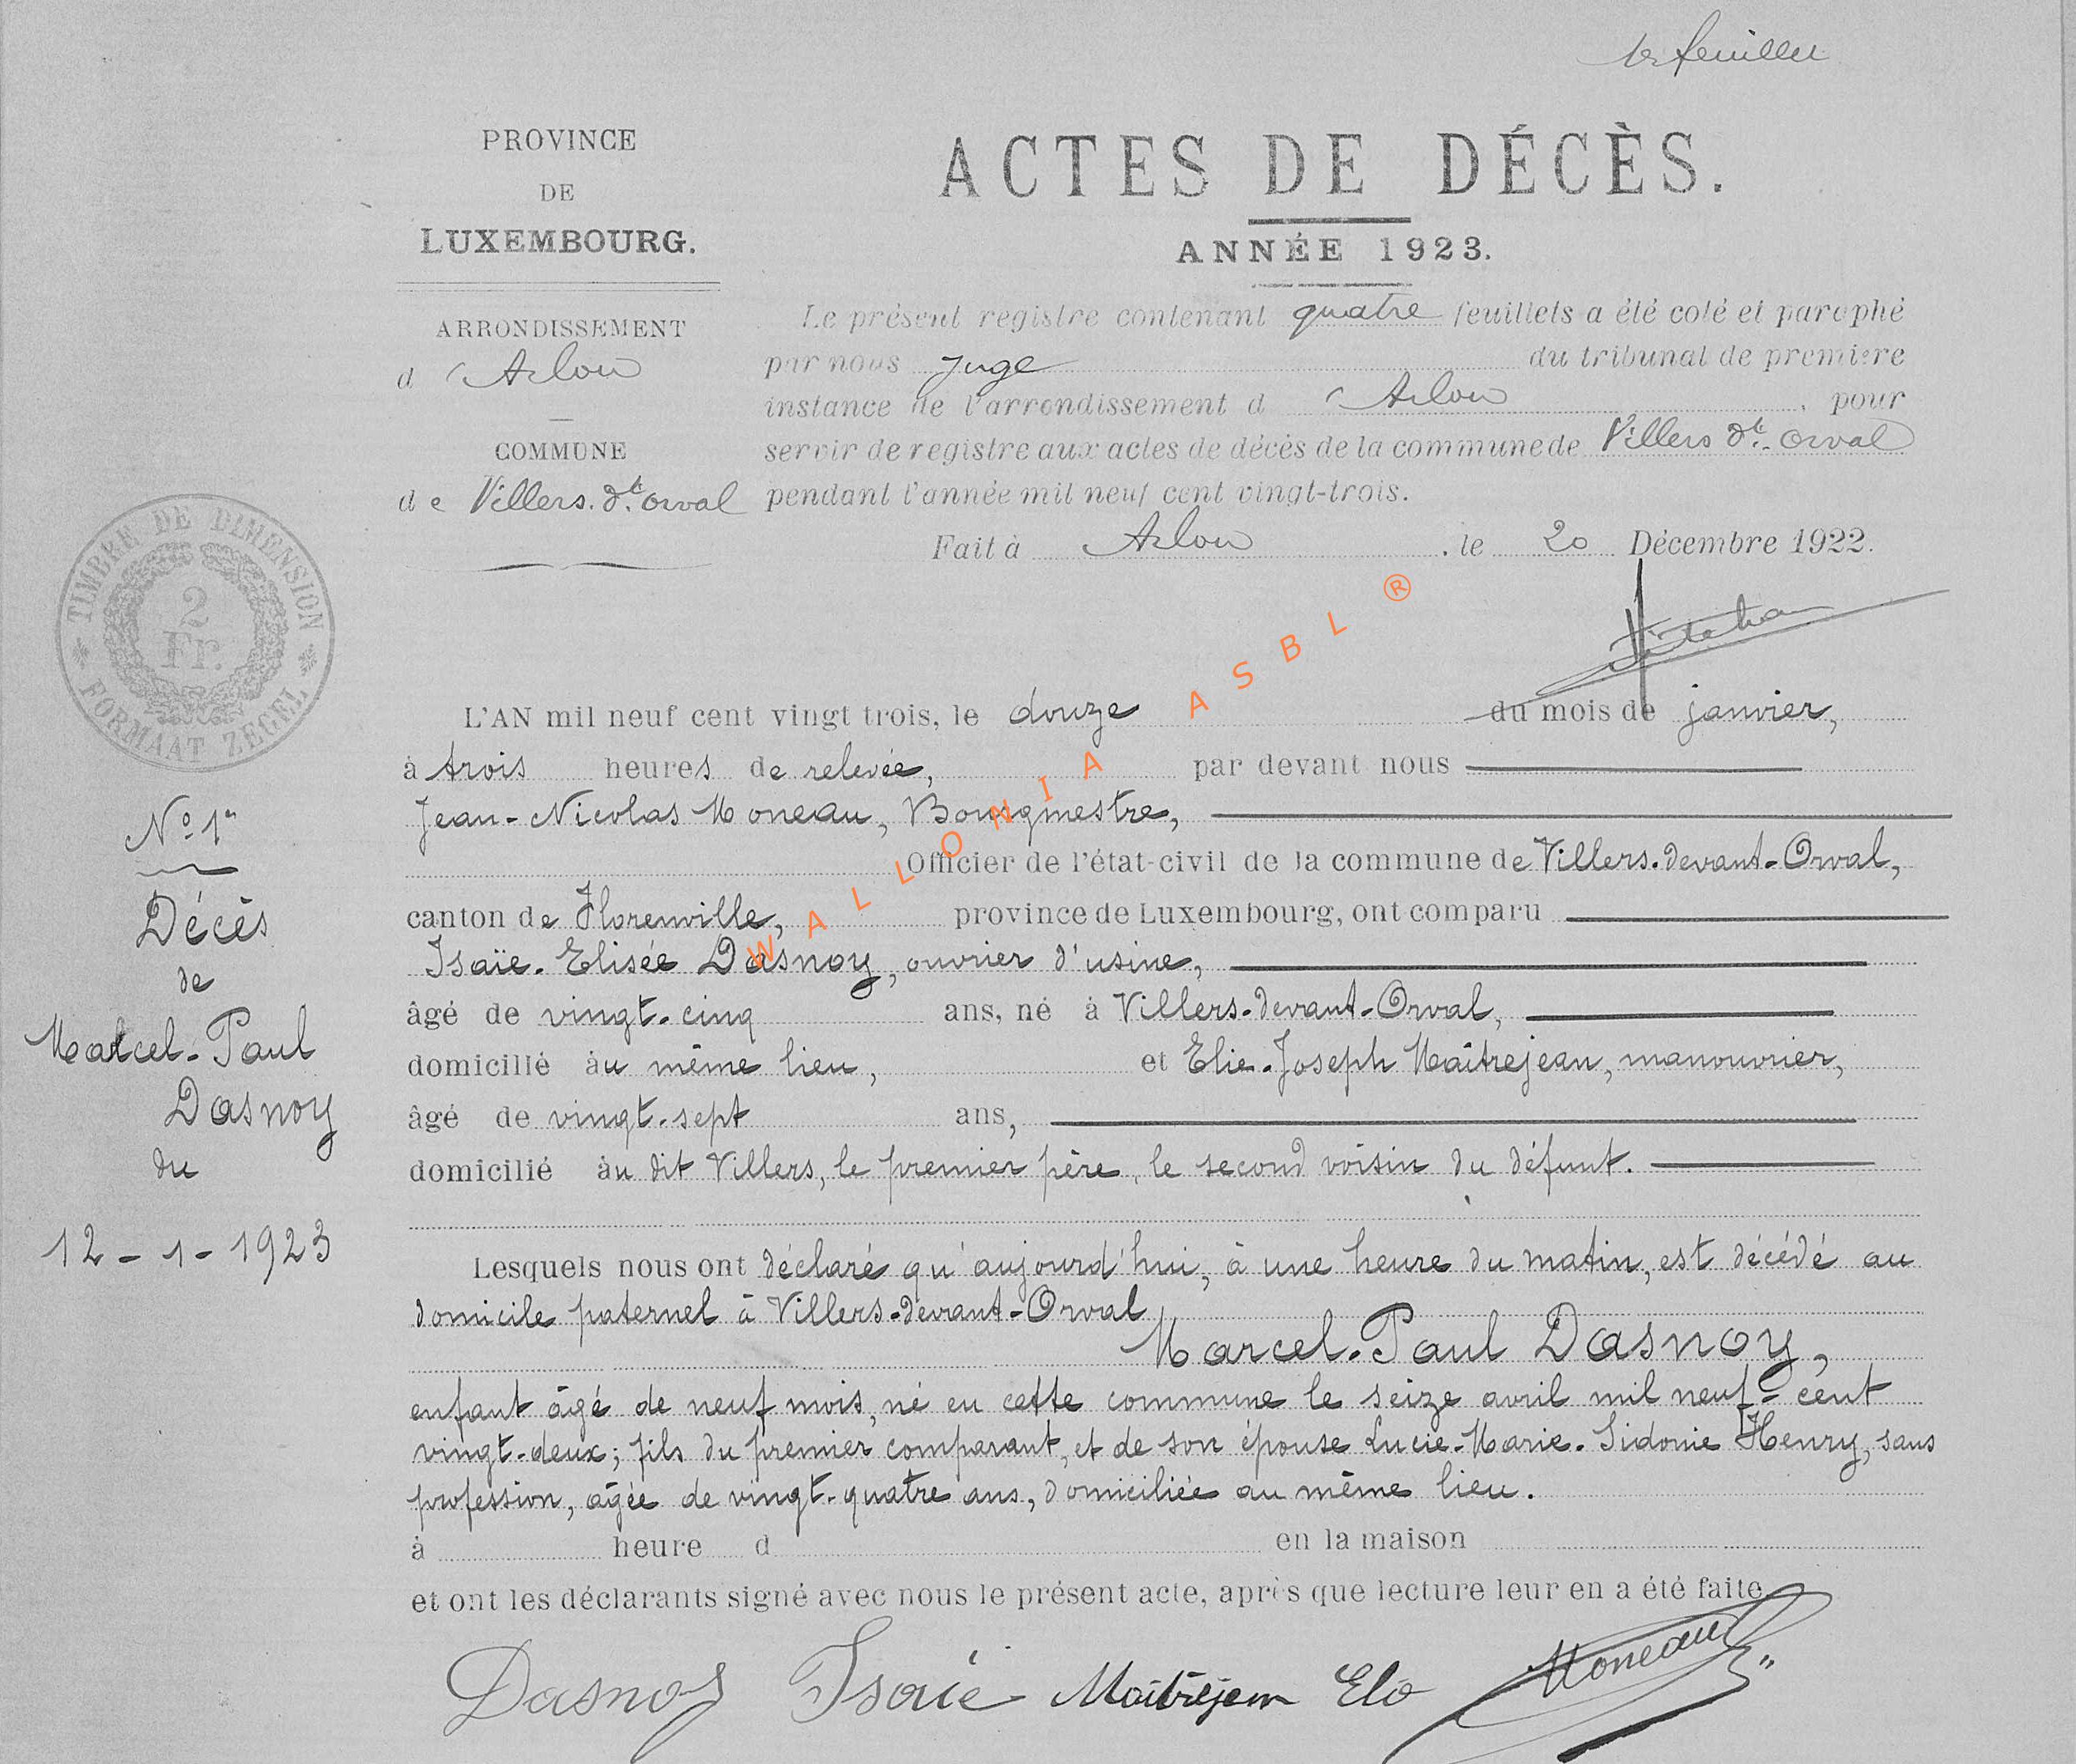 1er feuillet
PROVINCE
DE
LUXEMBOURG.
ARRONDISSEMENT
d Arlon
COMMUNE
de Villers-dt-Orval
ACTES DE DÉCÈS.
ANNÉE 1923.
Le présent registre contenant quatre feuillets a été coté et paraphé
par nous Juge du tribunal de première
instance de l'arrondissement d Arlon, pour
servir de registre aux actes de décès de la commune de Villers dt-Orval
pendant l'année mil neuf cent vingt-trois.
Fait à Arlon, le 20 Décembre 1922.
TIMBRE DE DIMENSION
2
Fr.
FORMAAT ZEGEL
WALLONIA ASBL ®
N° 1er
Décès
de
Marcel-Paul
Dasnoy
du
12-1-1923
L'AN mil neuf cent vingt trois, le douze du mois de janvier,
à trois heures de relevée, par devant nous
Jean-Nicolas Moneau, Bourgmestre,
Officier de l'état-civil de la commune de Villers-devant-Orval,
canton de Florenville, province de Luxembourg, ont comparu
Isaïe-Elisée Dasnoy, ouvrier d'usine,
âgé de vingt-cinq ans, né à Villers-devant-Orval,
domicilié au même lieu, et Elie-Joseph Maîtrejean, manouvrier,
âgé de vingt-sept ans,
domicilié au dit Villers, le premier père, le second voisin du défunt.
Lesquels nous ont déclaré qu'aujourd'hui, à une heure du matin, est décédé au
domicile paternel à Villers-devant-Orval
Marcel-Paul Dasnoy,
enfant âgé de neuf mois, né en cette commune le seize avril mil neuf-cent
vingt-deux; fils du premier comparant, et de son épouse Lucie-Marie-Sidonie Henry, sans
profession, âgée de vingt-quatre ans, domiciliée au même lieu.
à heure d en la maison
et ont les déclarants signé avec nous le présent acte, après que lecture leur en a été faite
Dasnoy Isaïe Maitrejean Elo Moneau